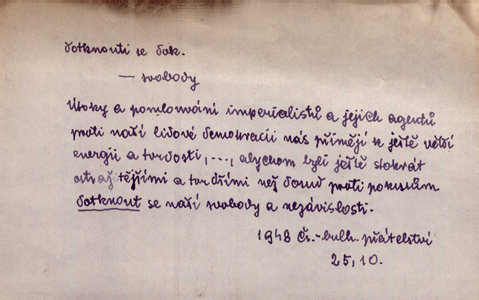 dotknouti se dok.
— svobody
Útoky a pomlouvání imperialistů a jejich agentů
proti naší lidové demokracii nás přimějí k ještě větší
energii a tvrdosti, ..., abychom byli ještě stokrát
ostražitějšími a tvrdšími než dosud proti pokusům
dotknout se naší svobody a nezávislosti.
1948 Čs.-bulh. přátelství
25, 10.